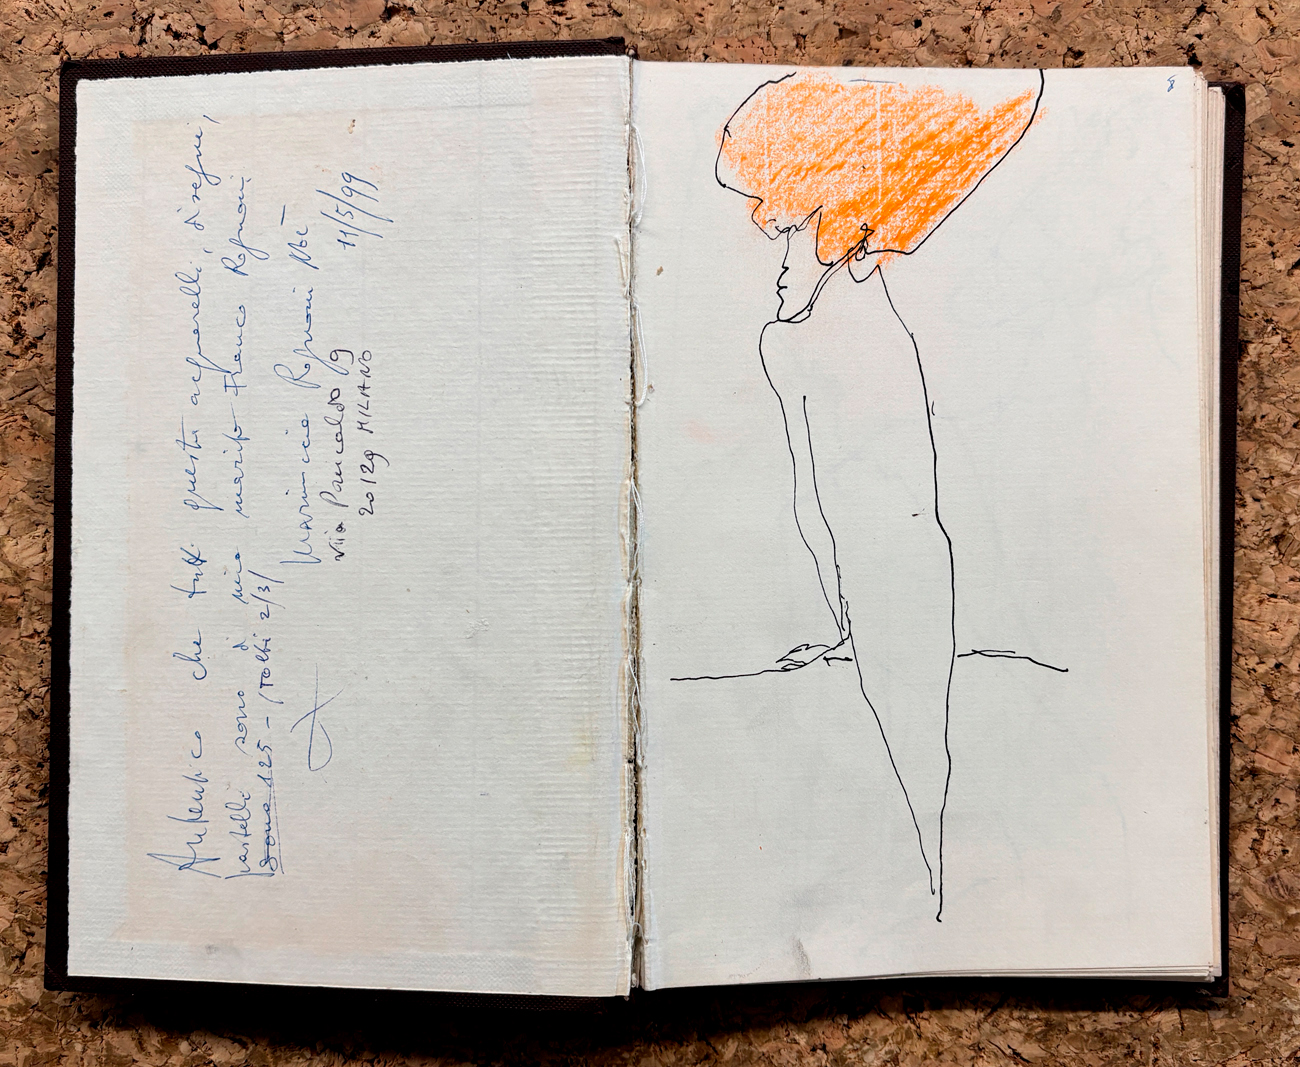 Autentico che tutti questi acquarelli, disegni,
pastelli sono di mio marito Franco Rognoni
sono 125 - (tolti 2/3/
Mariuccia Rognoni Noè
Via Pancaldo 9
20129 MILANO
11/5/99